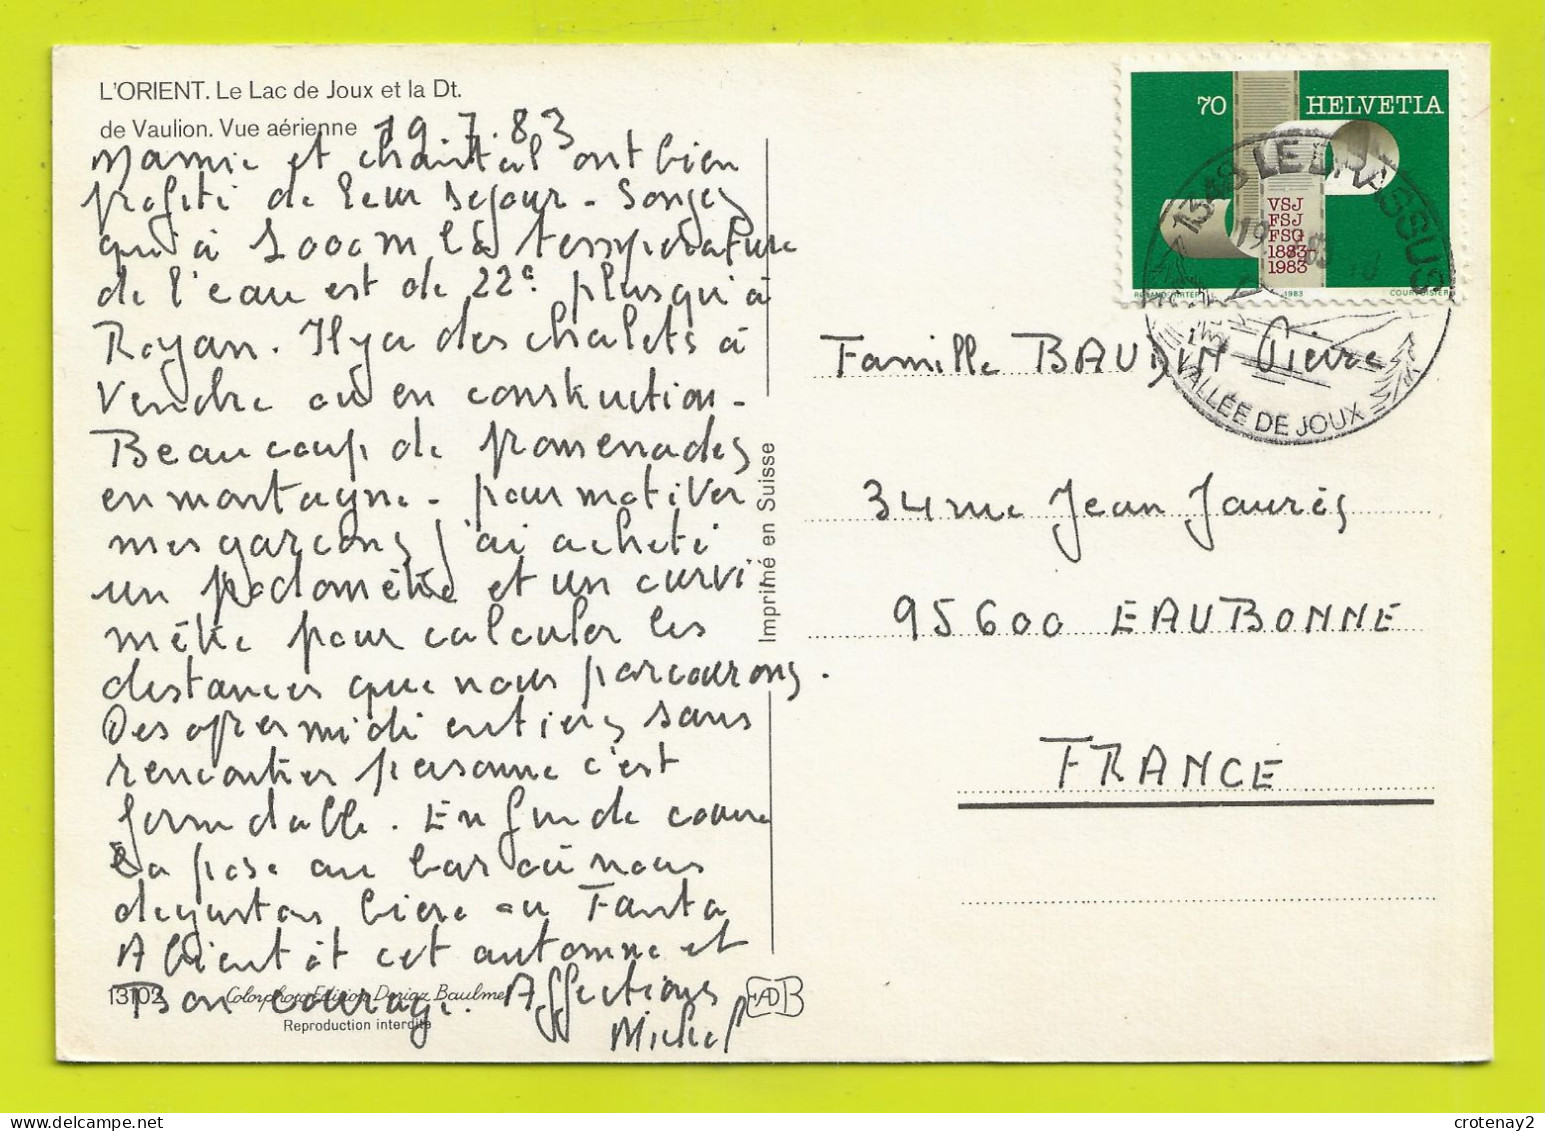 L'ORIENT. Le Lac de Joux et la Dt.
de Vaulion. Vue aérienne
19.7.83
Mamie et Chantal ont bien
profité de leur séjour - Songez
qu'à 1000m la température
de l'eau est de 22° plus qu'à
Royan. Il y a des chalets à
Vendre ou en construction -
Beaucoup de promenades
en montagne - pour motiver
mes garçons j'ai acheté
un podomètre et un curvi
mètre pour calculer les
distances que nous parcourons.
Des après midi entiers sans
rencontrer personne c'est
formidable. En fin de course
la pose au bar où nous
degustons biere ou Fanta
A bientôt cet automne et
Bon courage. Affections
Michel
13102
Colorphoto Edition Deriaz Baulmes
Reproduction interdite
EDB
Imprimé en Suisse
70 HELVETIA
VSJ
FSJ
FSG
1883-
1983
1983
COURVOISIER
1348 LE BRASSUS
VALLÉE DE JOUX
Famille BAUDIN Pierre
34 rue Jean Jaurés
95600 EAUBONNE
FRANCE
crotenay2